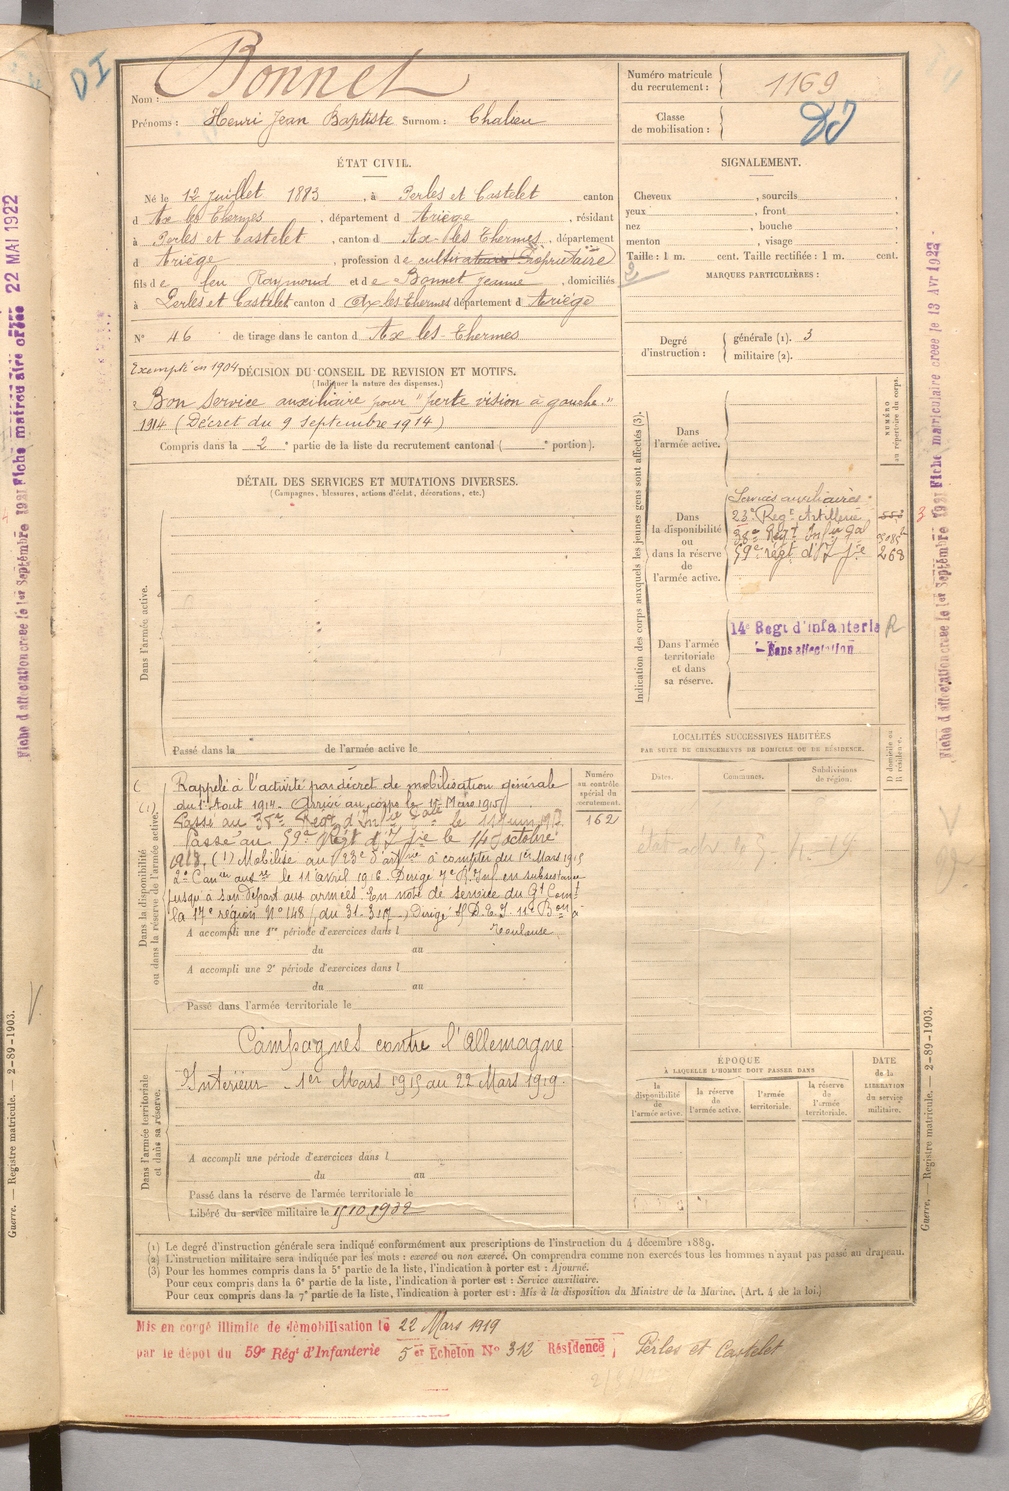 DI
Nom : Bonnet
Prénoms : Henri Jean Baptiste Surnom : Chalieu
Numéro matricule du recrutement : 1169
Classe de mobilisation :
ÉTAT CIVIL.
Né le 12 juillet 1883, à Perles et Castelet canton
d Ax les Thermes, département d Ariège, résidant
à Perles et Castelet, canton d Ax-les Thermes, département
d Ariège, profession de cultivateur Propriétaire
fils de feu Raymond et de Bonnet Jeanne, domiciliés
à Perles et Castelet canton d Ax les Thermes département d Ariège
N° 46 de tirage dans le canton d Ax les-Thermes
SIGNALEMENT.
Cheveux , sourcils ,
yeux , front ,
nez , bouche ,
menton , visage .
Taille : 1 m. cent. Taille rectifiée : 1 m. cent.
MARQUES PARTICULIÈRES :
Degré d'instruction : générale (1). 3
militaire (2).
Exempté en 1904 DÉCISION DU CONSEIL DE REVISION ET MOTIFS.
(Indiquer la nature des dispenses.)
Bon Service auxiliaire pour "perte vision à gauche."
1914 (Décret du 9 septembre 1914)
Compris dans la 2e partie de la liste du recrutement cantonal ( e portion).
DÉTAIL DES SERVICES ET MUTATIONS DIVERSES.
(Campagnes, blessures, actions d'éclat, décorations, etc.)
Dans l'armée active.
Passé dans la de l'armée active le
Indication des corps auxquels les jeunes gens sont affectés (3).
NUMÉRO au répertoire du corps.
Dans l'armée active.
Dans la disponibilité ou dans la réserve de l'armée active.
Services auxiliaires
23e Regt Artillerie
38e Regt Infie
59e régt d'I fie 268
Dans l'armée territoriale et dans sa réserve.
14e Regt d'infanterie R
Sans affectation
LOCALITÉS SUCCESSIVES HABITÉES
PAR SUITE DE CHANGEMENTS DE DOMICILE OU DE RÉSIDENCE.
Dates. Communes. Subdivisions de région. D domicile ou R résidence.
Dans la disponibilité ou dans la réserve de l'armée active.
Numéro au contrôle spécial du recrutement.
162
Rappelé à l'activité par décret de mobilisation générale
du 1er Août 1914. Arrivé au corps le 1er Mars 1915
Passé au 38e Régt d'Infie
Passé au 59e Régt d'I fie le 14 octobre
1918, (1) Mobilisé au 23e d'artie à compter du 1er Mars 1915
le 11 avril 1916. Dirigé 7e R. Inf. en subsistance
jusqu'à son départ aux armées. En note de service du Gl Comt
la 17e région N° 148
Toulouse
A accompli une 1re période d'exercices dans l
du au
A accompli une 2e période d'exercices dans l
du au
Passé dans l'armée territoriale le
Dans l'armée territoriale et dans sa réserve.
Campagnes contre l'Allemagne
Intérieur 1er Mars 1915 au 22 Mars 1919.
A accompli une période d'exercices dans l
du au
Passé dans la réserve de l'armée territoriale le
Libéré du service militaire le
ÉPOQUE
À LAQUELLE L'HOMME DOIT PASSER DANS
la disponibilité de l'armée active. la réserve de l'armée active. l'armée territoriale. la réserve de l'armée territoriale.
DATE de la LIBÉRATION du service militaire.
(1) Le degré d'instruction générale sera indiqué conformément aux prescriptions de l'instruction du 4 décembre 1889.
(2) L'instruction militaire sera indiquée par les mots : exercé ou non exercé. On comprendra comme non exercés tous les hommes n'ayant pas passé au drapeau.
(3) Pour les hommes compris dans la 5e partie de la liste, l'indication à porter est : Ajourné.
Pour ceux compris dans la 6e partie de la liste, l'indication à porter est : Service auxiliaire.
Pour ceux compris dans la 7e partie de la liste, l'indication à porter est : Mis à la disposition du Ministre de la Marine. (Art. 4 de la loi.)
Mis en congé illimité de démobilisation le 22 Mars 1919
par le dépot du 59e Régt d'Infanterie 5e Echelon N° 312 Résidence Perles et Castelet
Fiche d'affectation creee le 1er Septembre 1921 Fiche matriculaire créée 22 MAI 1922
Guerre. — Registre matricule. — 2-89-1903.
Fiche d'affectation creee le 1er Septembre 1921 Fiche matriculaire creee le 13 Avr 1922
Guerre. — Registre matricule. — 2-89-1903.